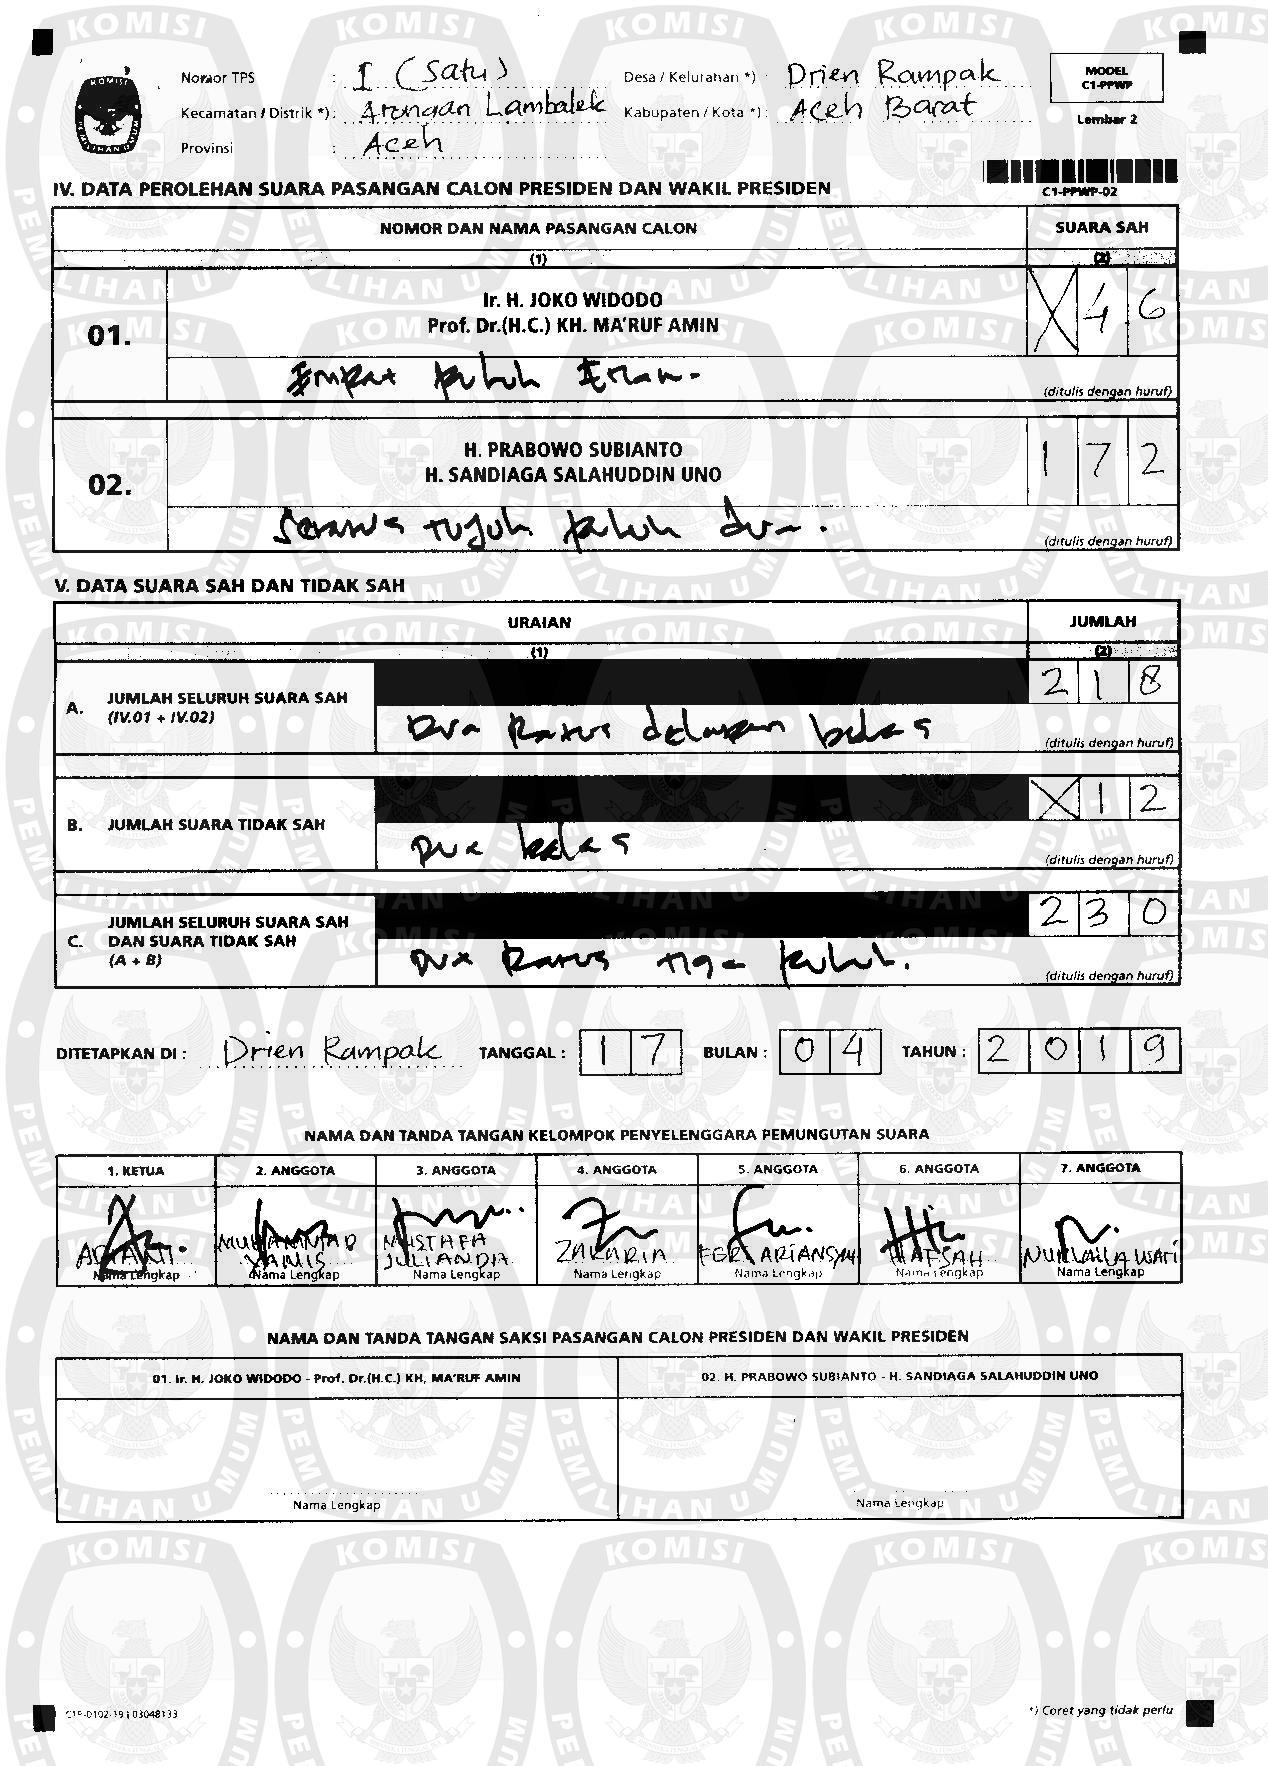 Nomor TPS : I (Satu)
Desa / Kelurahan *) : Drien Rampak
MODEL
C1-PPWP
Kecamatan / Distrik *) : Arongan Lambalek
Kabupaten / Kota *) : Aceh Barat
Lembar 2
Provinsi : Aceh
IV. DATA PEROLEHAN SUARA PASANGAN CALON PRESIDEN DAN WAKIL PRESIDEN
C1-PPWP-02
NOMOR DAN NAMA PASANGAN CALON SUARA SAH
(1) (2)
01. Ir. H. JOKO WIDODO
Prof. Dr.(H.C.) KH. MA'RUF AMIN
X 4 6
Empat puluh Enam
(ditulis dengan huruf)
02. H. PRABOWO SUBIANTO
H. SANDIAGA SALAHUDDIN UNO
1 7 2
Seratus tujuh puluh dua.
(ditulis dengan huruf)
V. DATA SUARA SAH DAN TIDAK SAH
URAIAN JUMLAH
(1) (2)
A. JUMLAH SELURUH SUARA SAH
(IV.01 + IV.02)
2 1 8
Dua Ratus delapan belas
(ditulis dengan huruf)
B. JUMLAH SUARA TIDAK SAH
X 1 2
Dua belas
(ditulis dengan huruf)
C. JUMLAH SELURUH SUARA SAH
DAN SUARA TIDAK SAH
(A + B)
2 3 0
Dua Ratus tiga puluh.
(ditulis dengan huruf)
DITETAPKAN DI : Drien Rampak TANGGAL : 1 7 BULAN : 0 4 TAHUN : 2 0 1 9
NAMA DAN TANDA TANGAN KELOMPOK PENYELENGGARA PEMUNGUTAN SUARA
1. KETUA 2. ANGGOTA 3. ANGGOTA 4. ANGGOTA 5. ANGGOTA 6. ANGGOTA 7. ANGGOTA
MUHAMMAD YANIS
MUSTAFA JULIANDA
ZAKARIA
FERI ARIANSYAH
HAFSAH
NURLAILA WATI
Nama Lengkap Nama Lengkap Nama Lengkap Nama Lengkap Nama Lengkap Nama Lengkap Nama Lengkap
NAMA DAN TANDA TANGAN SAKSI PASANGAN CALON PRESIDEN DAN WAKIL PRESIDEN
01. Ir. H. JOKO WIDODO - Prof. Dr.(H.C.) KH. MA'RUF AMIN
02. H. PRABOWO SUBIANTO - H. SANDIAGA SALAHUDDIN UNO
Nama Lengkap Nama Lengkap
C1P-0102-19 | 03048133
*) Coret yang tidak perlu
KOMISI
PEMILIHAN UMUM